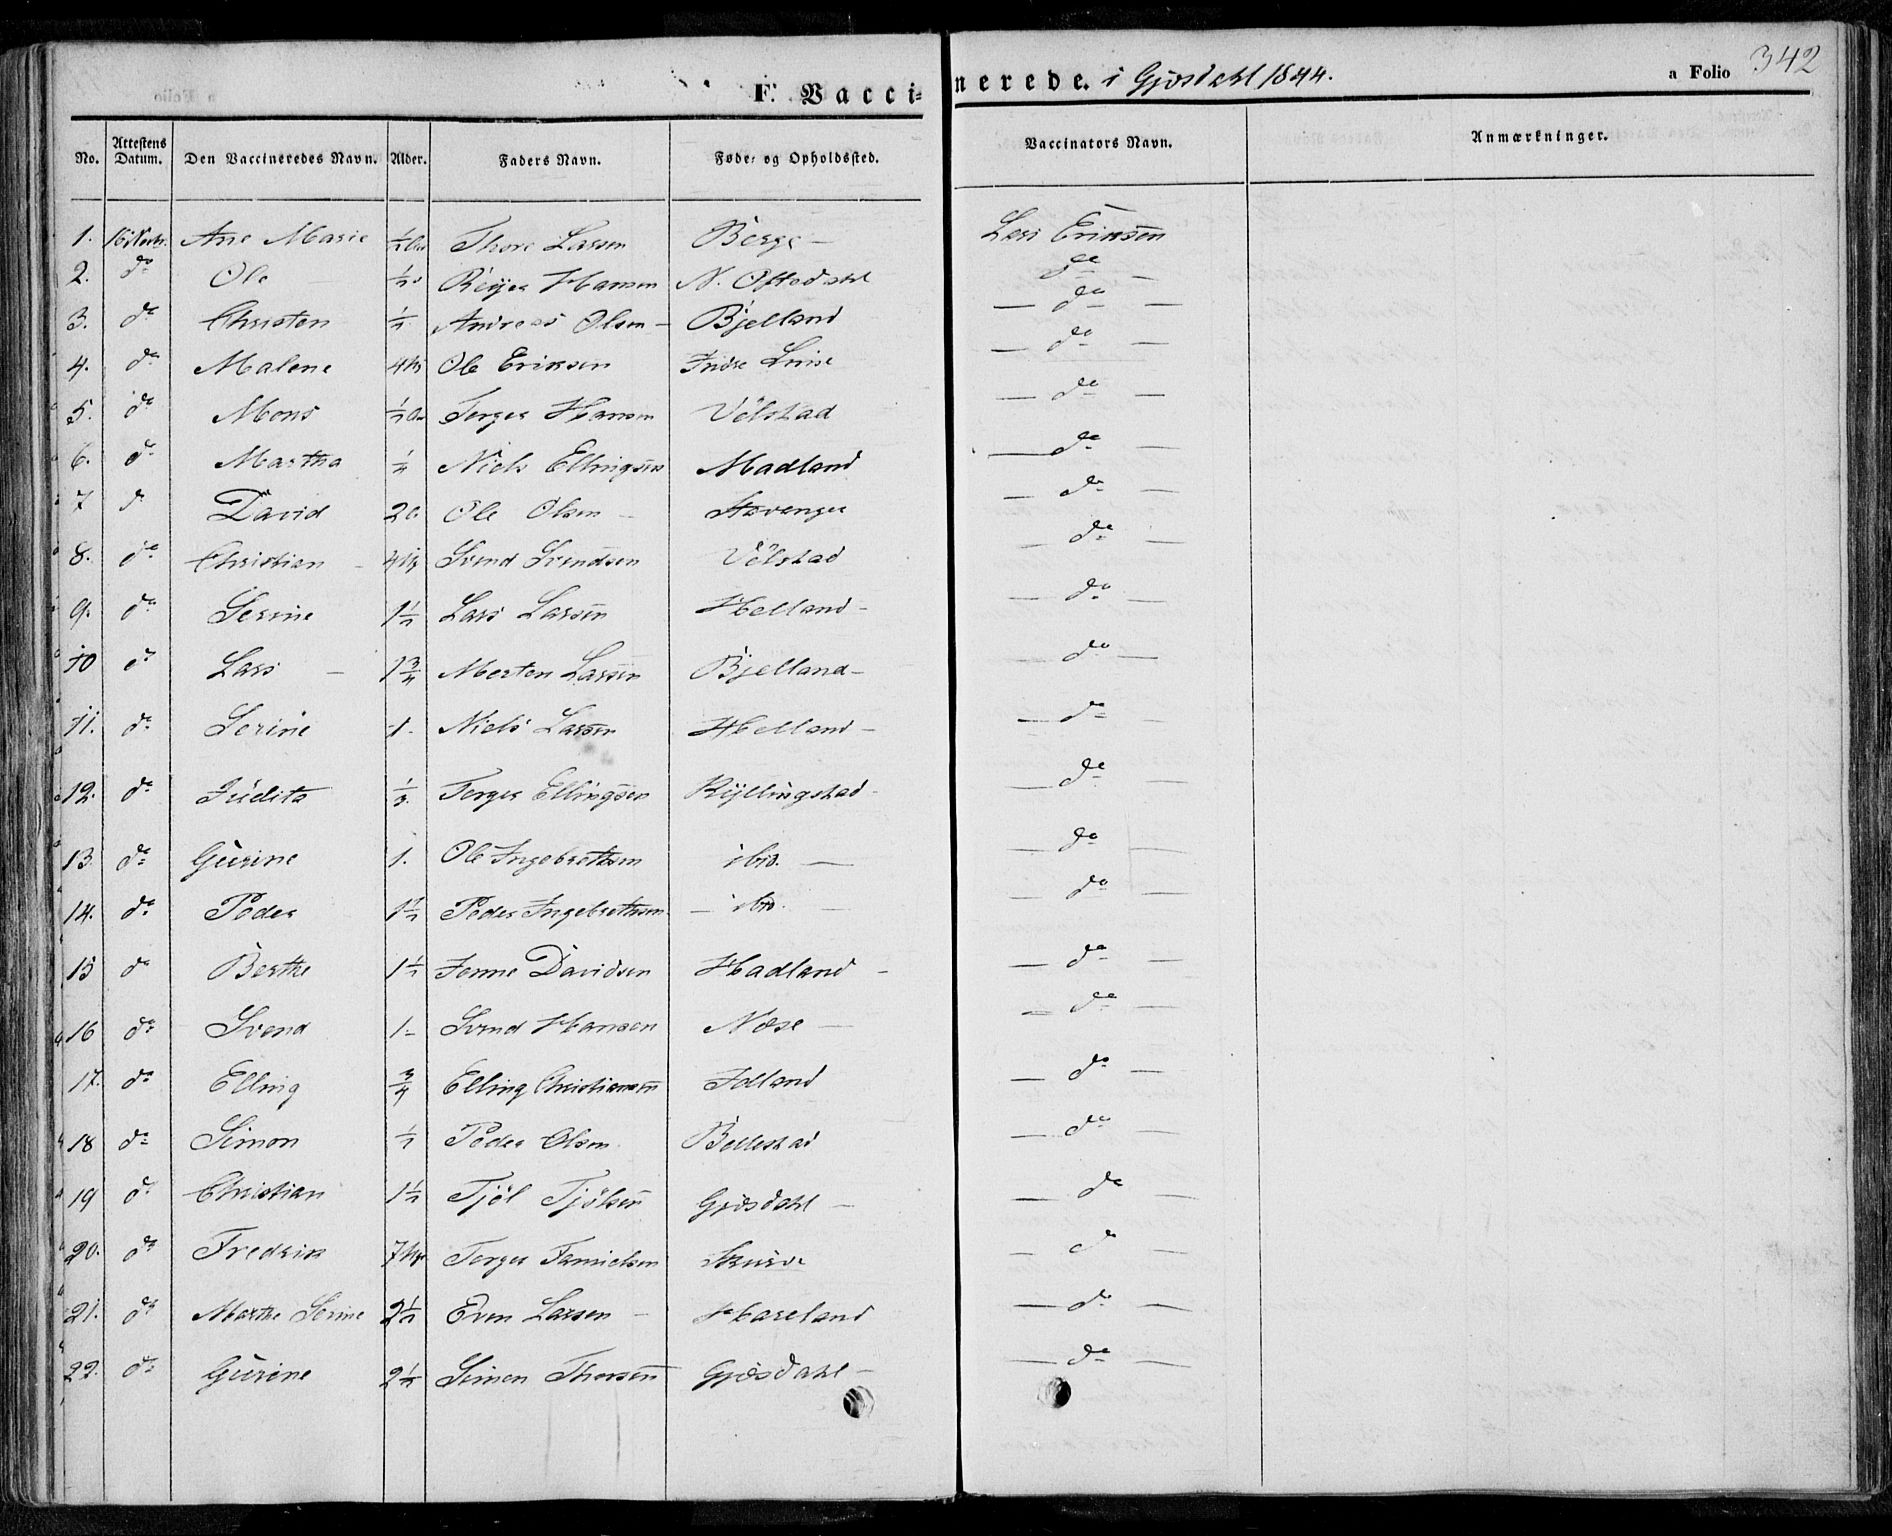 F. Vaccinerede. i Gjesdahl 1844. a Folio 342
No. Attestens Datum. Den Vaccineredes Navn. Alder. Faders Navn. Føde- og Opholdssted. Vaccinators Navn. Anmærkninger.
1. 16 Ane Marie 1/2 Thore Larsen Berge — Lars Eriksen
2. do Ole 1/2 Reier Hansen N. Oftedahl do —
3. do Christen 1/2 Andreas Olsen — Bjelland — do —
4. do Malene Ole Eriksen Indre Lime — do —
5. do Mons 1/2 Terger Hansen Vølstad — do —
6. do Martha 1/4 Niels Ellingsen Madland — do —
7 do David 2 Ole Olsen — Stavanger — do —
8. do Christian — Svend Svendsen Vølstad — do —
9. do Serine 1 1/2 Lars Larsen Helland — — do —
10 do Lars — 1 3/4 Morten Larsen Bjelland — — do —
11. do Serine 1. Niels Larsen Helland — — do —
12. do Judita 1/3 Terger Ellingsen Kyllingstad — do —
13. do Gurine 1. Ole Ingebrethsen ibid. — do —
14. do Peder 1 1/2 Peder Ingebrethsen — ibid. — do —
15 do Berthe 1 1/2 Jonne Davidsen Madland — — do —
16 do Svend 1 — Svend Hansen Nese — — do —
17. do Elling 3/4 Elling Christiansen Folland — do —
18 do Simon 1/2 Peder Olsen Bollestad — do —
19 do Christian 1 1/2 Tjøl Tjølsen Gjesdahl — — do —
20. do Fredrik Terger Skurve — do —
21. do Marthe Serine 2 1/2 Even Larsen — Hareland — do —
22. do Gurine 2 1/2 Simon Thorsen Gjesdahl — — do —